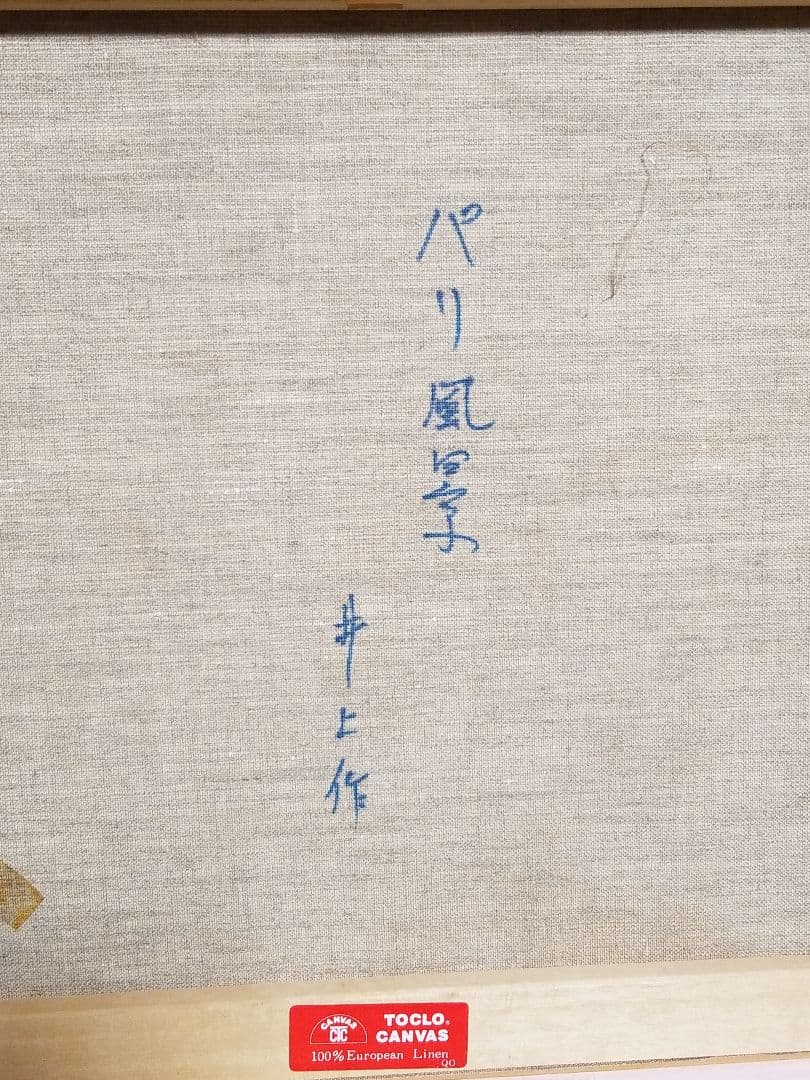 パリ風景
井上作
CANVAS
CTC
TOCLO®
CANVAS
100% European Linen
QO